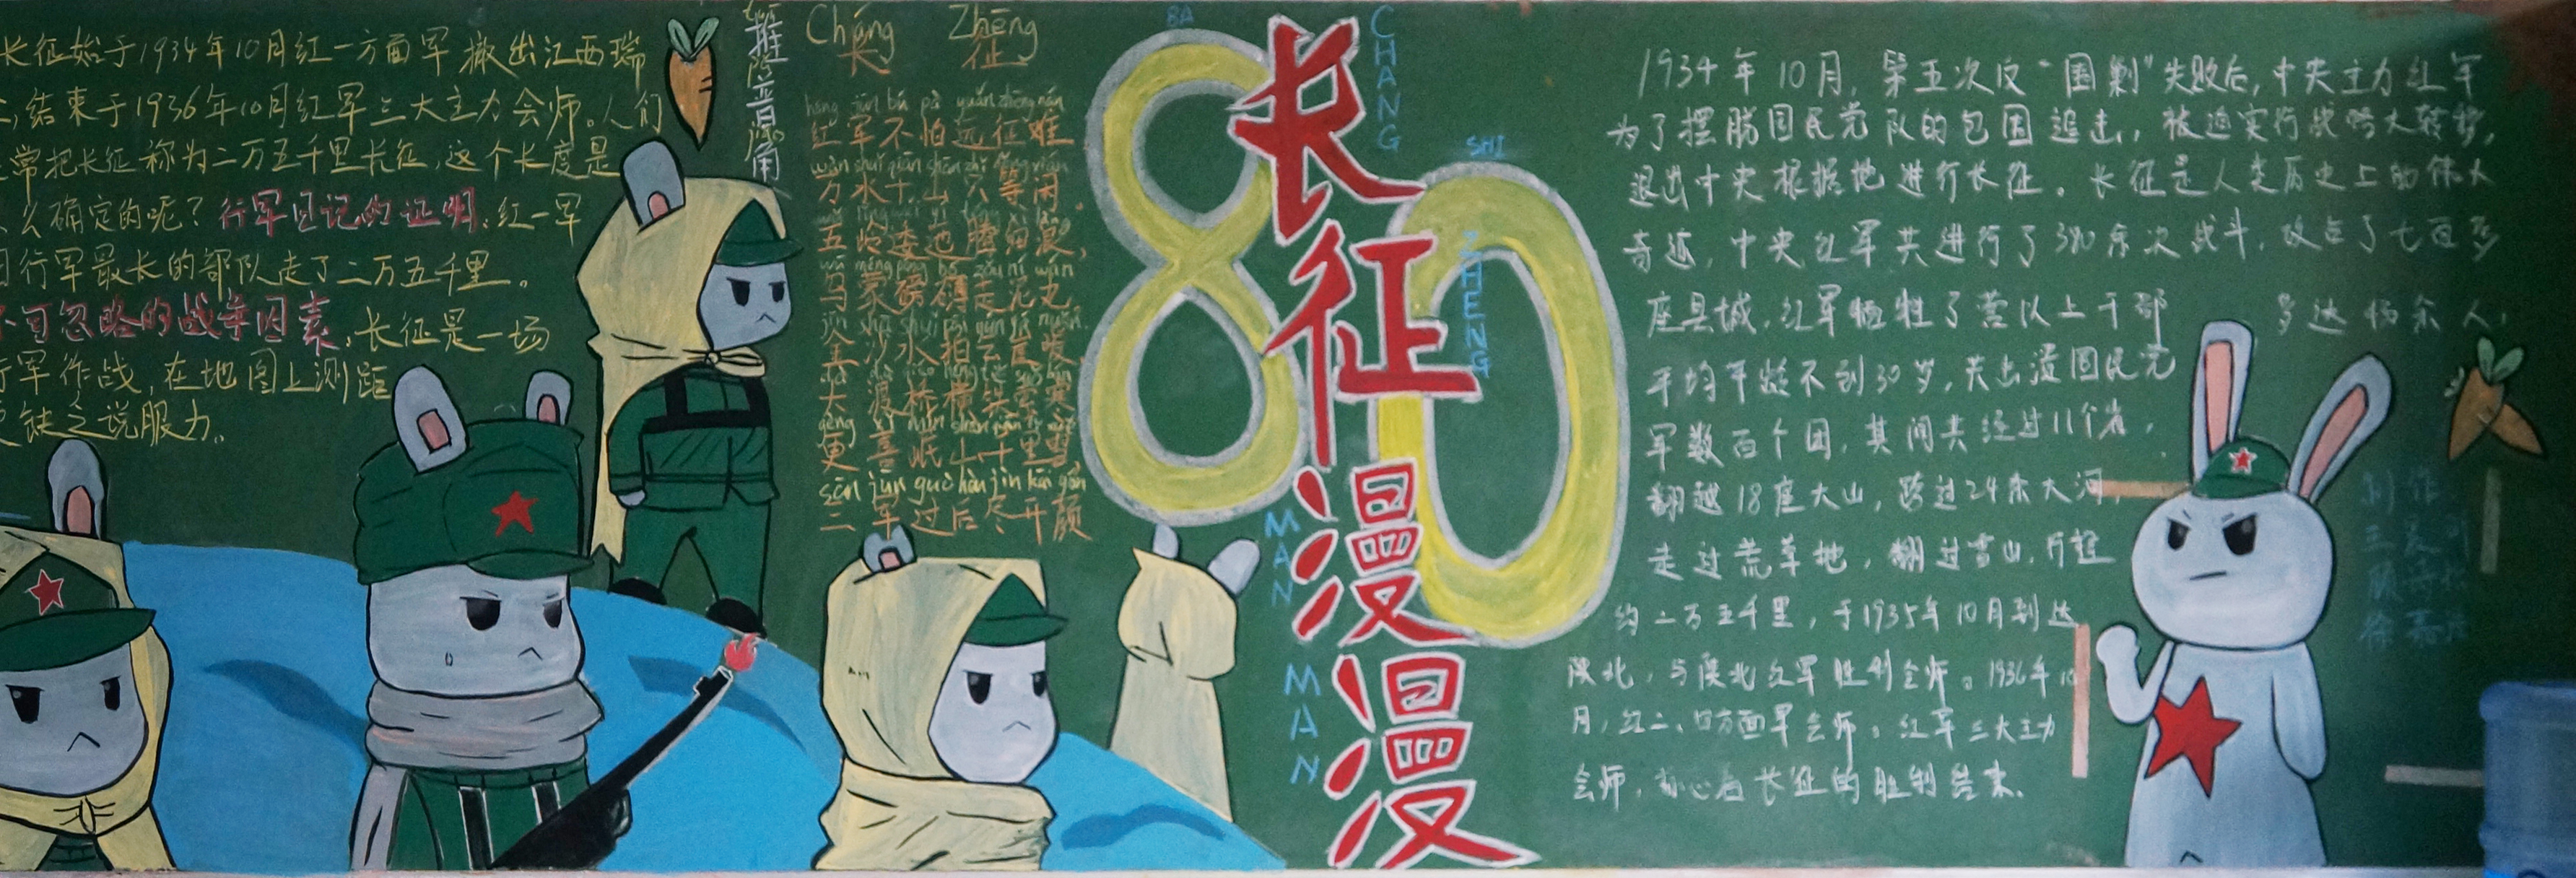 长征始于1934年10月红一方面军撤出江西瑞
结束于1936年10月红军三大主力会师。人们
常把长征称为二万五千里长征,这个长度是
么确定的呢?行军日记的证明.红一军
行军最长的部队走了二万五千里。
不可忽略的战争因素.长征是一场
行军作战,在地图上测距
缺乏说服力。
拼音角
Cháng Zhēng
长 征
hóng jūn bú pà yuǎn zhēng nán
红军不怕远征难
wàn shuǐ qiān shān zhǐ děng xián
万水千山只等闲.
五岭逶迤腾细浪,
wū méng páng bó zǒu ní wán
乌蒙磅礴走泥丸
jīn shā shuǐ pāi yún yá nuǎn
金沙水拍云崖暖
大渡桥横铁索寒
gèng xǐ mín shān qiān lǐ xuě
更喜岷山千里雪
sān jūn guò hòu jìn kāi yán
三军过后尽开颜
80
BA
SHI
长征漫漫
CHANG
ZHENG
MAN
MAN
1934年10月,第五次反“围剿”失败后,中央主力红军
为了摆脱国民党队的包围追击,被迫实行战略大转移,
退出中央根据地进行长征。长征是人类历史上的伟大
奇迹,中央红军共进行了380余次战斗,攻占了七百多
座县城,红军牺牲了营以上干部 多达 余人,
平均年龄不到30岁,共击溃国民党
军数百个团,其间共经过11个省,
翻越18座大山,跨过24条大河,
走过荒草地,翻过雪山,行程
约二万五千里,于1935年10月到达
陕北,与陕北红军胜利会师。1936年10
月,红二、四方面军会师。红军三大主力
会师,标志着长征的胜利结束.
制作